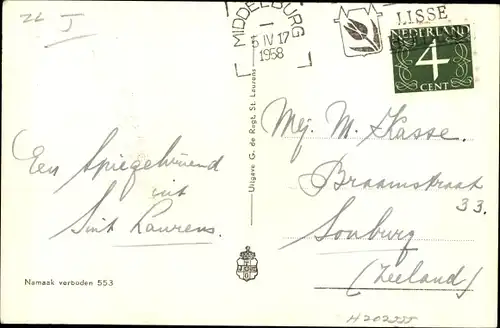 ZL J
MIDDELBURG
5 IV 17
1958
LISSE
NEDERLAND
4
CENT
Een Spiegelvriend
uit
Sint Laurens.
Uitgave G. de Regt, St. Laurens
Mej. M. Kasse.
Braamstraat
33.
Souburg
(Zeeland)
Namaak verboden 553
H202555